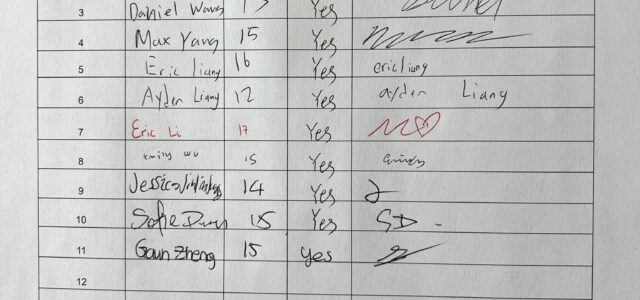 3 Daniel Wang 13 Yes
4 Max Yang 15 Yes
5 Eric liang 16 Yes ericliang
6 Ayden Liang 12 Yes ayden Liang
7 Eric Li 17 Yes
8 Emily wu 15 Yes
9 Jessica 14 Yes
10 Sofie 15 Yes SD
11 Gavin Zheng 15 yes
12